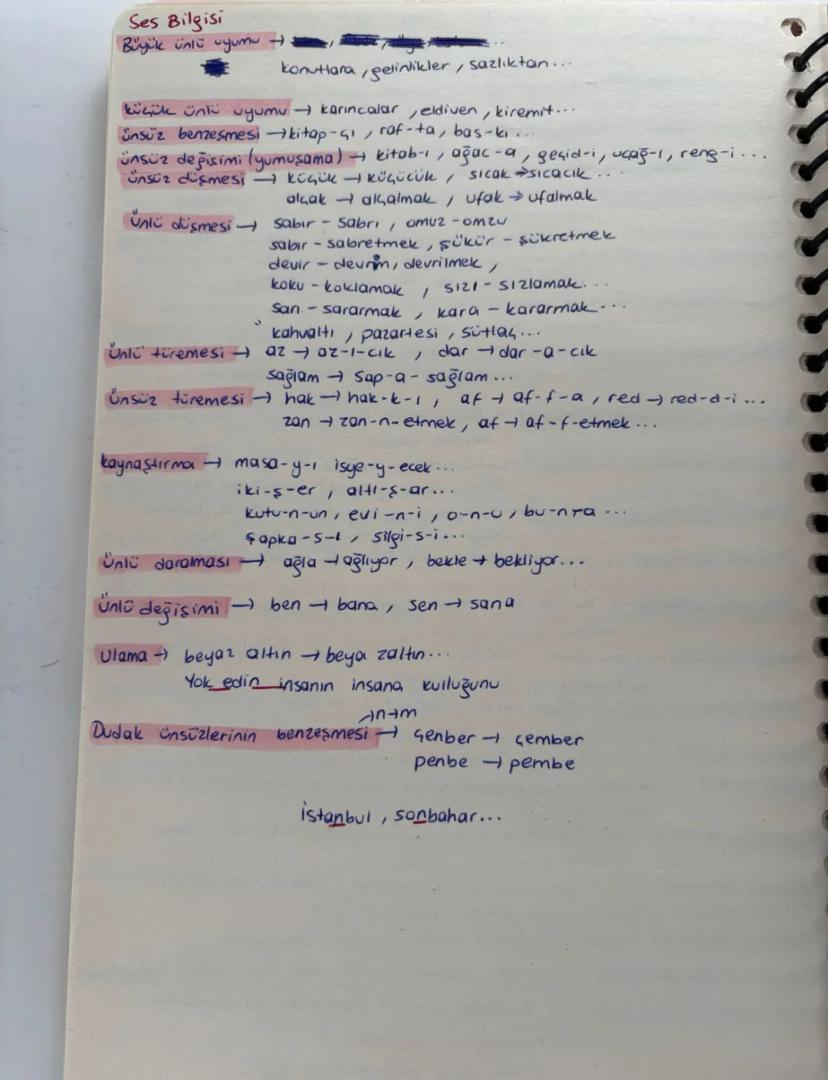 Ses Bilgisi
Büyük ünlü uyumu → , , ...
konutlara, gelinlikler, sazlıktan...
küçük ünlü uyumu → karıncalar, eldiven, kiremit...
ünsüz benzeşmesi → kitap-çı, raf-ta, bas-kı...
ünsüz değişimi (yumuşama) → kitab-ı, ağac-a, geçid-i, uçağ-ı, reng-i...
ünsüz düşmesi → küçük → küçücük, sıcak → sıcacık...
alçak → alçalmak, ufak → ufalmak
Ünlü düşmesi → sabır - sabrı, omuz - omzu
sabır - sabretmek, şükür - şükretmek
devir - devrim, devrilmek,
koku - koklamak, sızı - sızlamak...
sarı - sararmak, kara - kararmak...
" kahvaltı, pazartesi, sütlaç...
Ünlü türemesi → az → az-ı-cık, dar → dar-a-cık
sağlam → sap-a-sağlam...
Ünsüz türemesi → hak → hak-k-ı, af → af-f-a, red → red-d-i...
zan → zan-n-etmek, af → af-f-etmek...
kaynaştırma → masa-y-ı isye-y-ecek...
iki-ş-er, altı-ş-ar...
kutu-n-un, evi-n-i, o-n-u, bu-n-ra...
şapka-s-ı, silgi-s-i...
Ünlü daralması → ağla → ağlıyor, bekle → bekliyor...
Ünlü değişimi → ben → bana, sen → sana
Ulama → beyaz altın → beya zaltın...
Yok edin insanın insana kulluğunu
→ n→m
Dudak ünsüzlerinin benzeşmesi → çenber → çember
penbe → pembe
İstanbul, sonbahar...